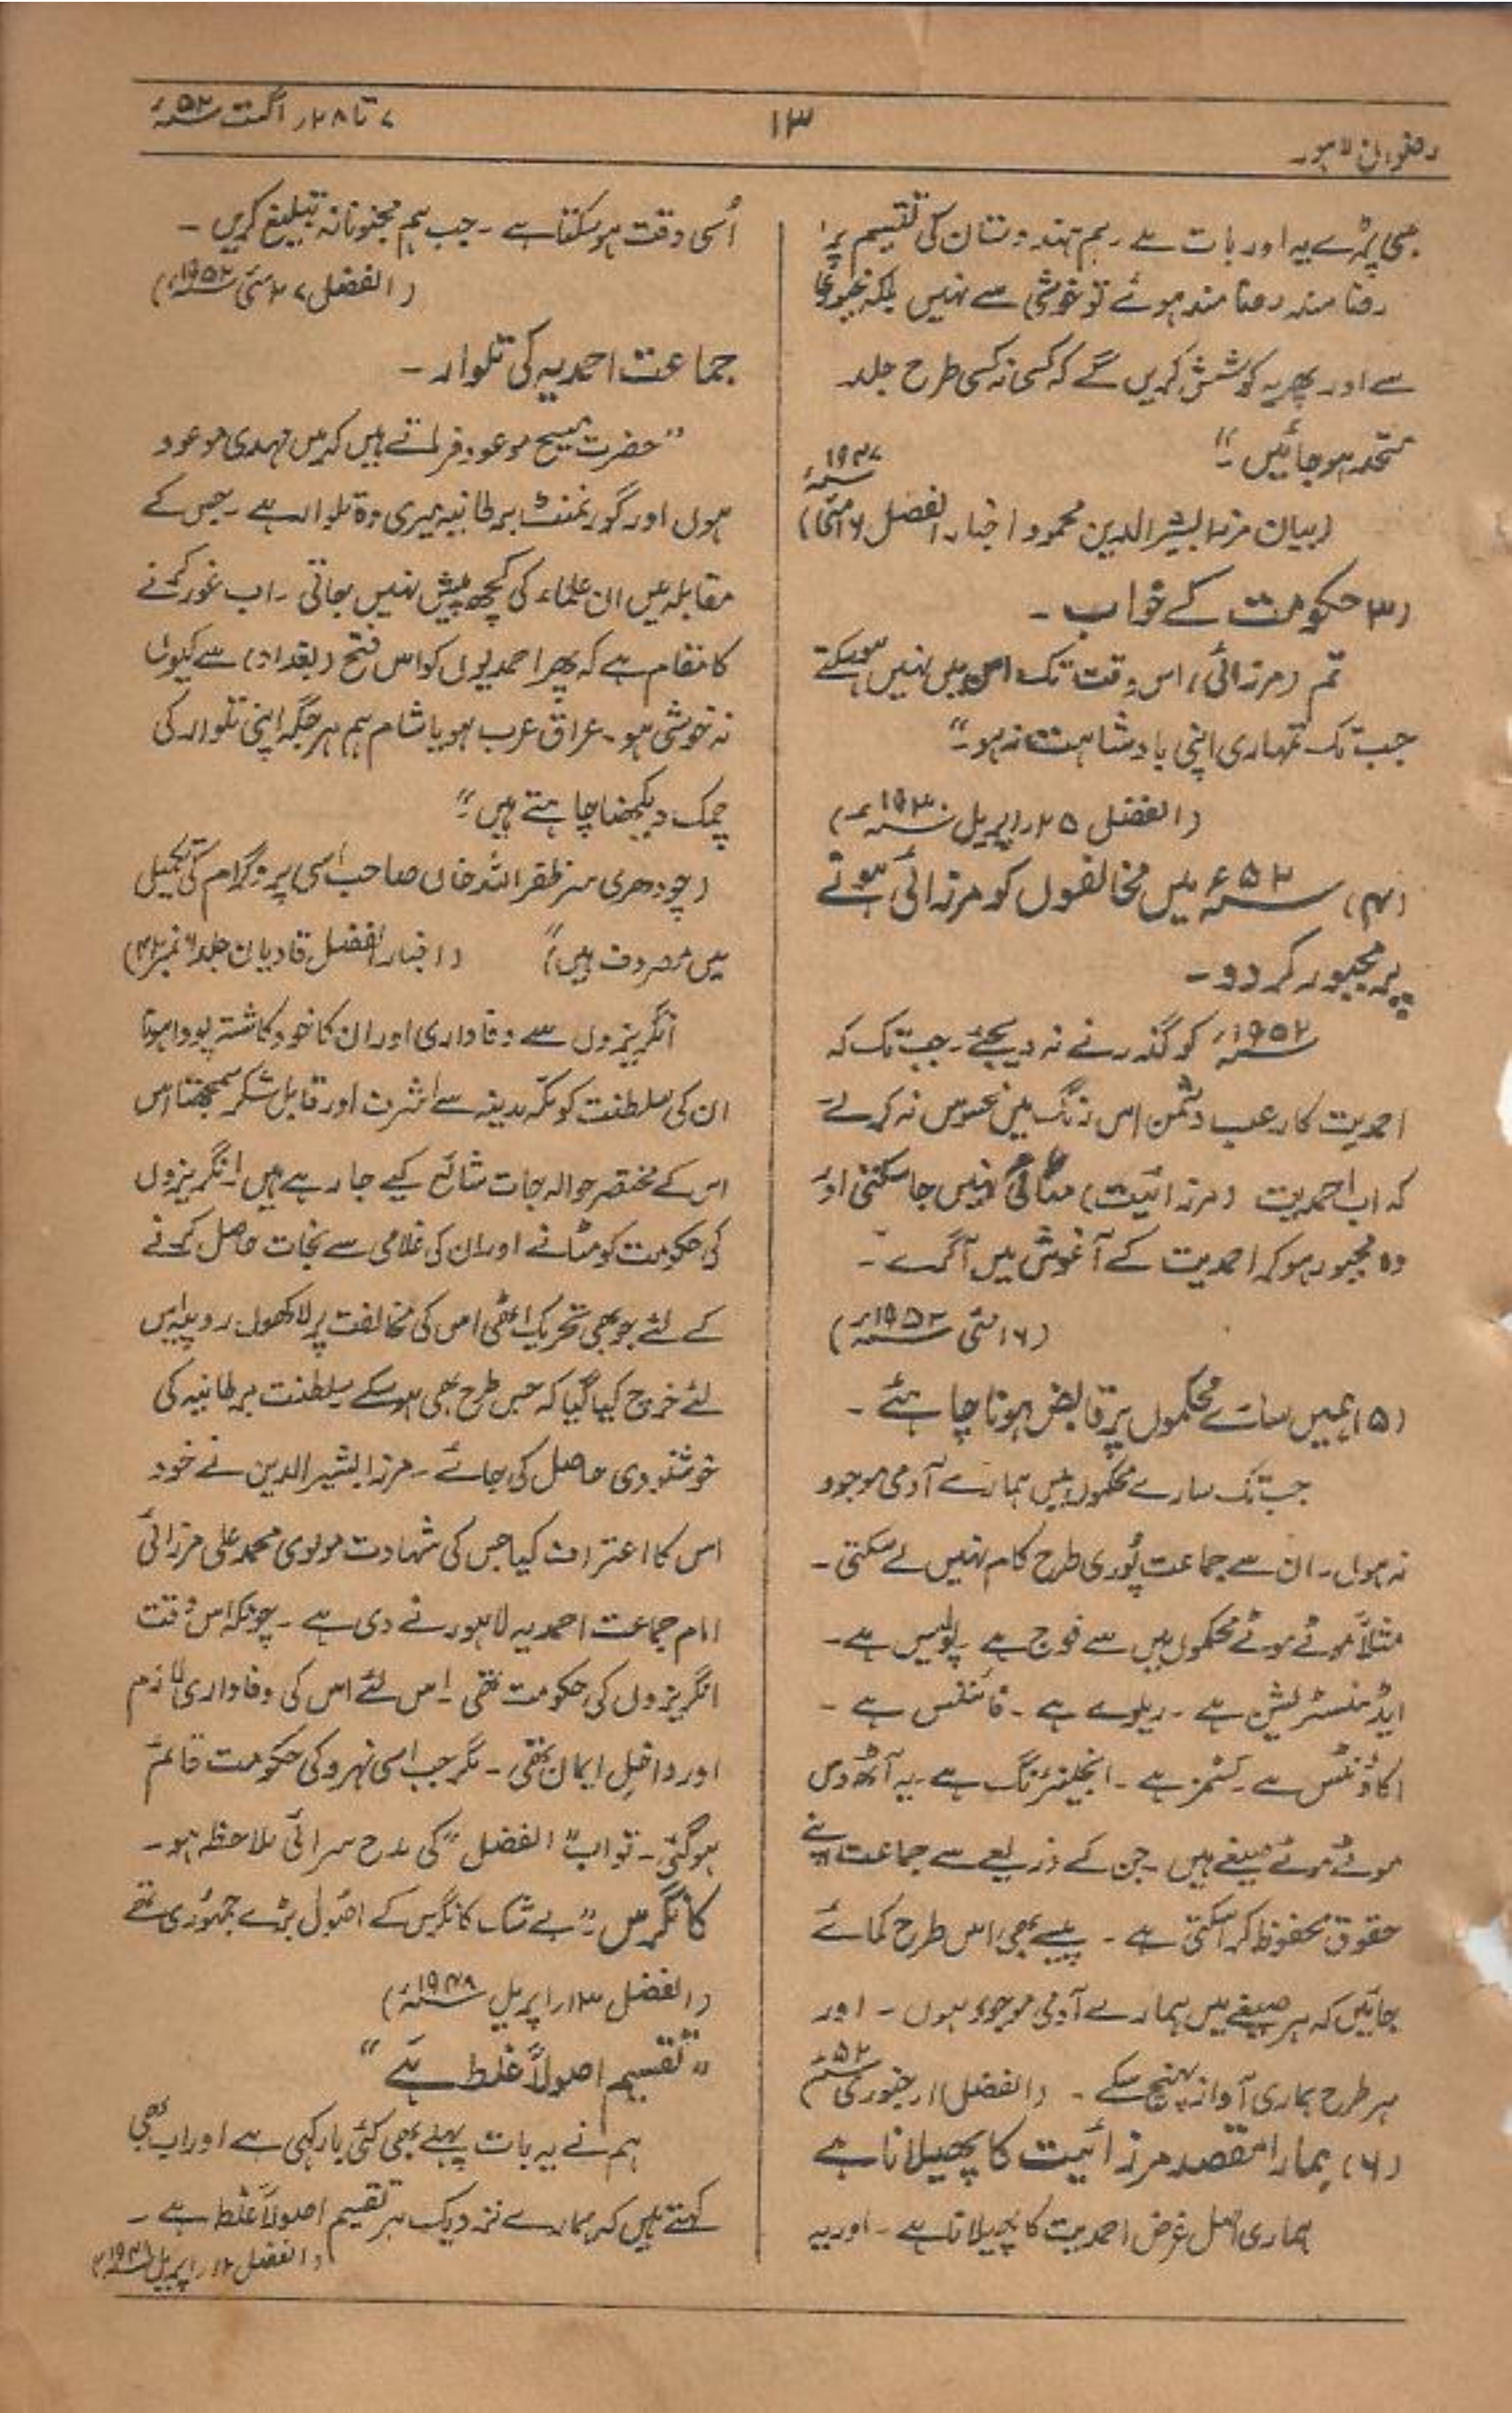 رضوان لاہور
۱۳
۷ تا ۲۸ر اگست ۵۲ء
بھی پڑے یہ اور بات ہے ۔ ہم ہندوستان کی تقسیم پر
رضا مند رضا مند ہوئے تو خوشی سے نہیں بلکہ مجبوری
سے اور پھر یہ کوشش کریں گے کہ کسی نہ کسی طرح جلد
متحد ہو جائیں ۔"
(بیان مرزا بشیر الدین محمود اخبار الفضل ۱۶ مئی ۱۹۴۷ء)
(۳) حکومت کے خواب ۔
تم (مرزائی) اس وقت تک امن میں نہیں ہو سکتے
جب تک تمہاری اپنی بادشاہت نہ ہو ۔"
(الفضل ۲۵ر اپریل ۱۹۳۰ء)
(۴) ۵۲ء میں مخالفوں کو مرزائی ہونے
پر مجبور کر دو ۔
۱۹۵۲ء کو گذرنے نہ دیجئے ۔ جب تک کہ
احمدیت کا رعب دشمن اس رنگ میں محسوس نہ کرلے
کہ اب احمدیت (مرزائیت) مٹائی نہیں جا سکتی اور
وہ مجبور ہو کر احمدیت کے آغوش میں آ گرے ۔
(۱۶ مئی ۱۹۵۲ء)
(۵) ہمیں سارے محکموں پر قابض ہونا چاہئے ۔
جب تک سارے محکموں میں ہمارے آدمی موجود
نہ ہوں ۔ ان سے جماعت پُوری طرح کام نہیں لے سکتی ۔
مثلاً موٹے موٹے محکموں میں سے فوج ہے پولیس ہے ۔
ایڈمنسٹریشن ہے ۔ ریلوے ہے ۔ فائننس ہے ۔
اکاؤنٹس ہے ۔ کسٹمز ہے ۔ انجینئرنگ ہے ۔ یہ آٹھ دس
موٹے موٹے صیغے ہیں ۔ جن کے ذریعے سے جماعت اپنے
حقوق محفوظ کرا سکتی ہے ۔ پیسے بھی اس طرح کمائے
جائیں کہ ہر صیغے میں ہمارے آدمی موجود ہوں ۔ اور
ہر طرح ہماری آواز پہنچ سکے ۔ (الفضل ۱۱ر جنوری ۵۲ء)
(۶) ہمارا مقصد مرزائیت کا پھیلانا ہے
ہماری اصل غرض احمدیت کا پھیلانا ہے ۔ اور یہ
اُسی وقت ہو سکتا ہے ۔ جب ہم مجنونانہ تبلیغ کریں ۔
(الفضل ۲۷ مئی ۱۹۵۲ء)
جماعت احمدیہ کی تلوار ۔
"حضرت مسیح موعود فرماتے ہیں کہ میں مہدی موعود
ہوں اور گورنمنٹ برطانیہ میری وہ تلوار ہے ۔ جس کے
مقابلہ میں ان علماء کی کچھ پیش نہیں جاتی ۔ اب غور کرنے
کا مقام ہے کہ پھر احمدیوں کو اس فتح (بغداد) سے کیوں
نہ خوشی ہو ۔ عراق عرب ہو یا شام ہم ہر جگہ اپنی تلوار کی
چمک دیکھنا چاہتے ہیں ۔"
(چودھری سر ظفر اللہ خاں صاحب اسی پروگرام کی تکمیل
میں مصروف ہیں) (اخبار الفضل قادیان جلد ۶ نمبر ۴۲)
انگریزوں سے وفاداری اور ان کا خود کاشتہ پودا ہونا
ان کی سلطنت کو مکہ مدینہ سے اشرف اور قابل شکر سمجھنا اس
اس کے مختصر حوالہ جات شائع کیے جا رہے ہیں انگریزوں
کی حکومت کو مٹانے اور ان کی غلامی سے نجات حاصل کرنے
کے لئے جو بھی تحریک اٹھی اس کی مخالفت پر لاکھوں روپیہ اس
لئے خرچ کیا گیا کہ جس طرح بھی ہو سکے سلطنت برطانیہ کی
خوشنودی حاصل کی جائے ۔ مرزا بشیر الدین نے خود
اس کا اعتراف کیا جس کی شہادت مولوی محمد علی مرزائی
امام جماعت احمدیہ لاہور نے دی ہے ۔ چونکہ اس وقت
انگریزوں کی حکومت تھی ۔ اس لئے اس کی وفاداری لازم
اور داخلِ ایمان تھی ۔ مگر جب اسی نہرو کی حکومت قائم
ہو گئی ۔ تو اب "الفضل" کی مدح سرائی ملاحظہ ہو ۔
کانگرس "بے شک کانگرس کے اصُول بڑے جمہوری تھے
(الفضل ۱۳ر اپریل ۱۹۴۸ء)
"تقسیم اصولاً غلط ہے"
ہم نے یہ بات پہلے بھی کئی بار کہی ہے اور اب بھی
کہتے ہیں کہ ہمارے نزدیک ہر تقسیم اصولاً غلط ہے ۔
(الفضل ۱۲ر اپریل ۱۹۴۸ء)